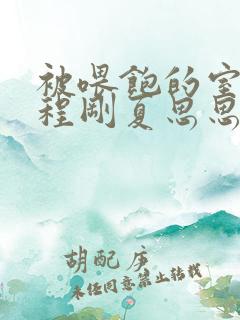 被喂饱的室
程刚夏思思
胡配序
未经同意禁止转载